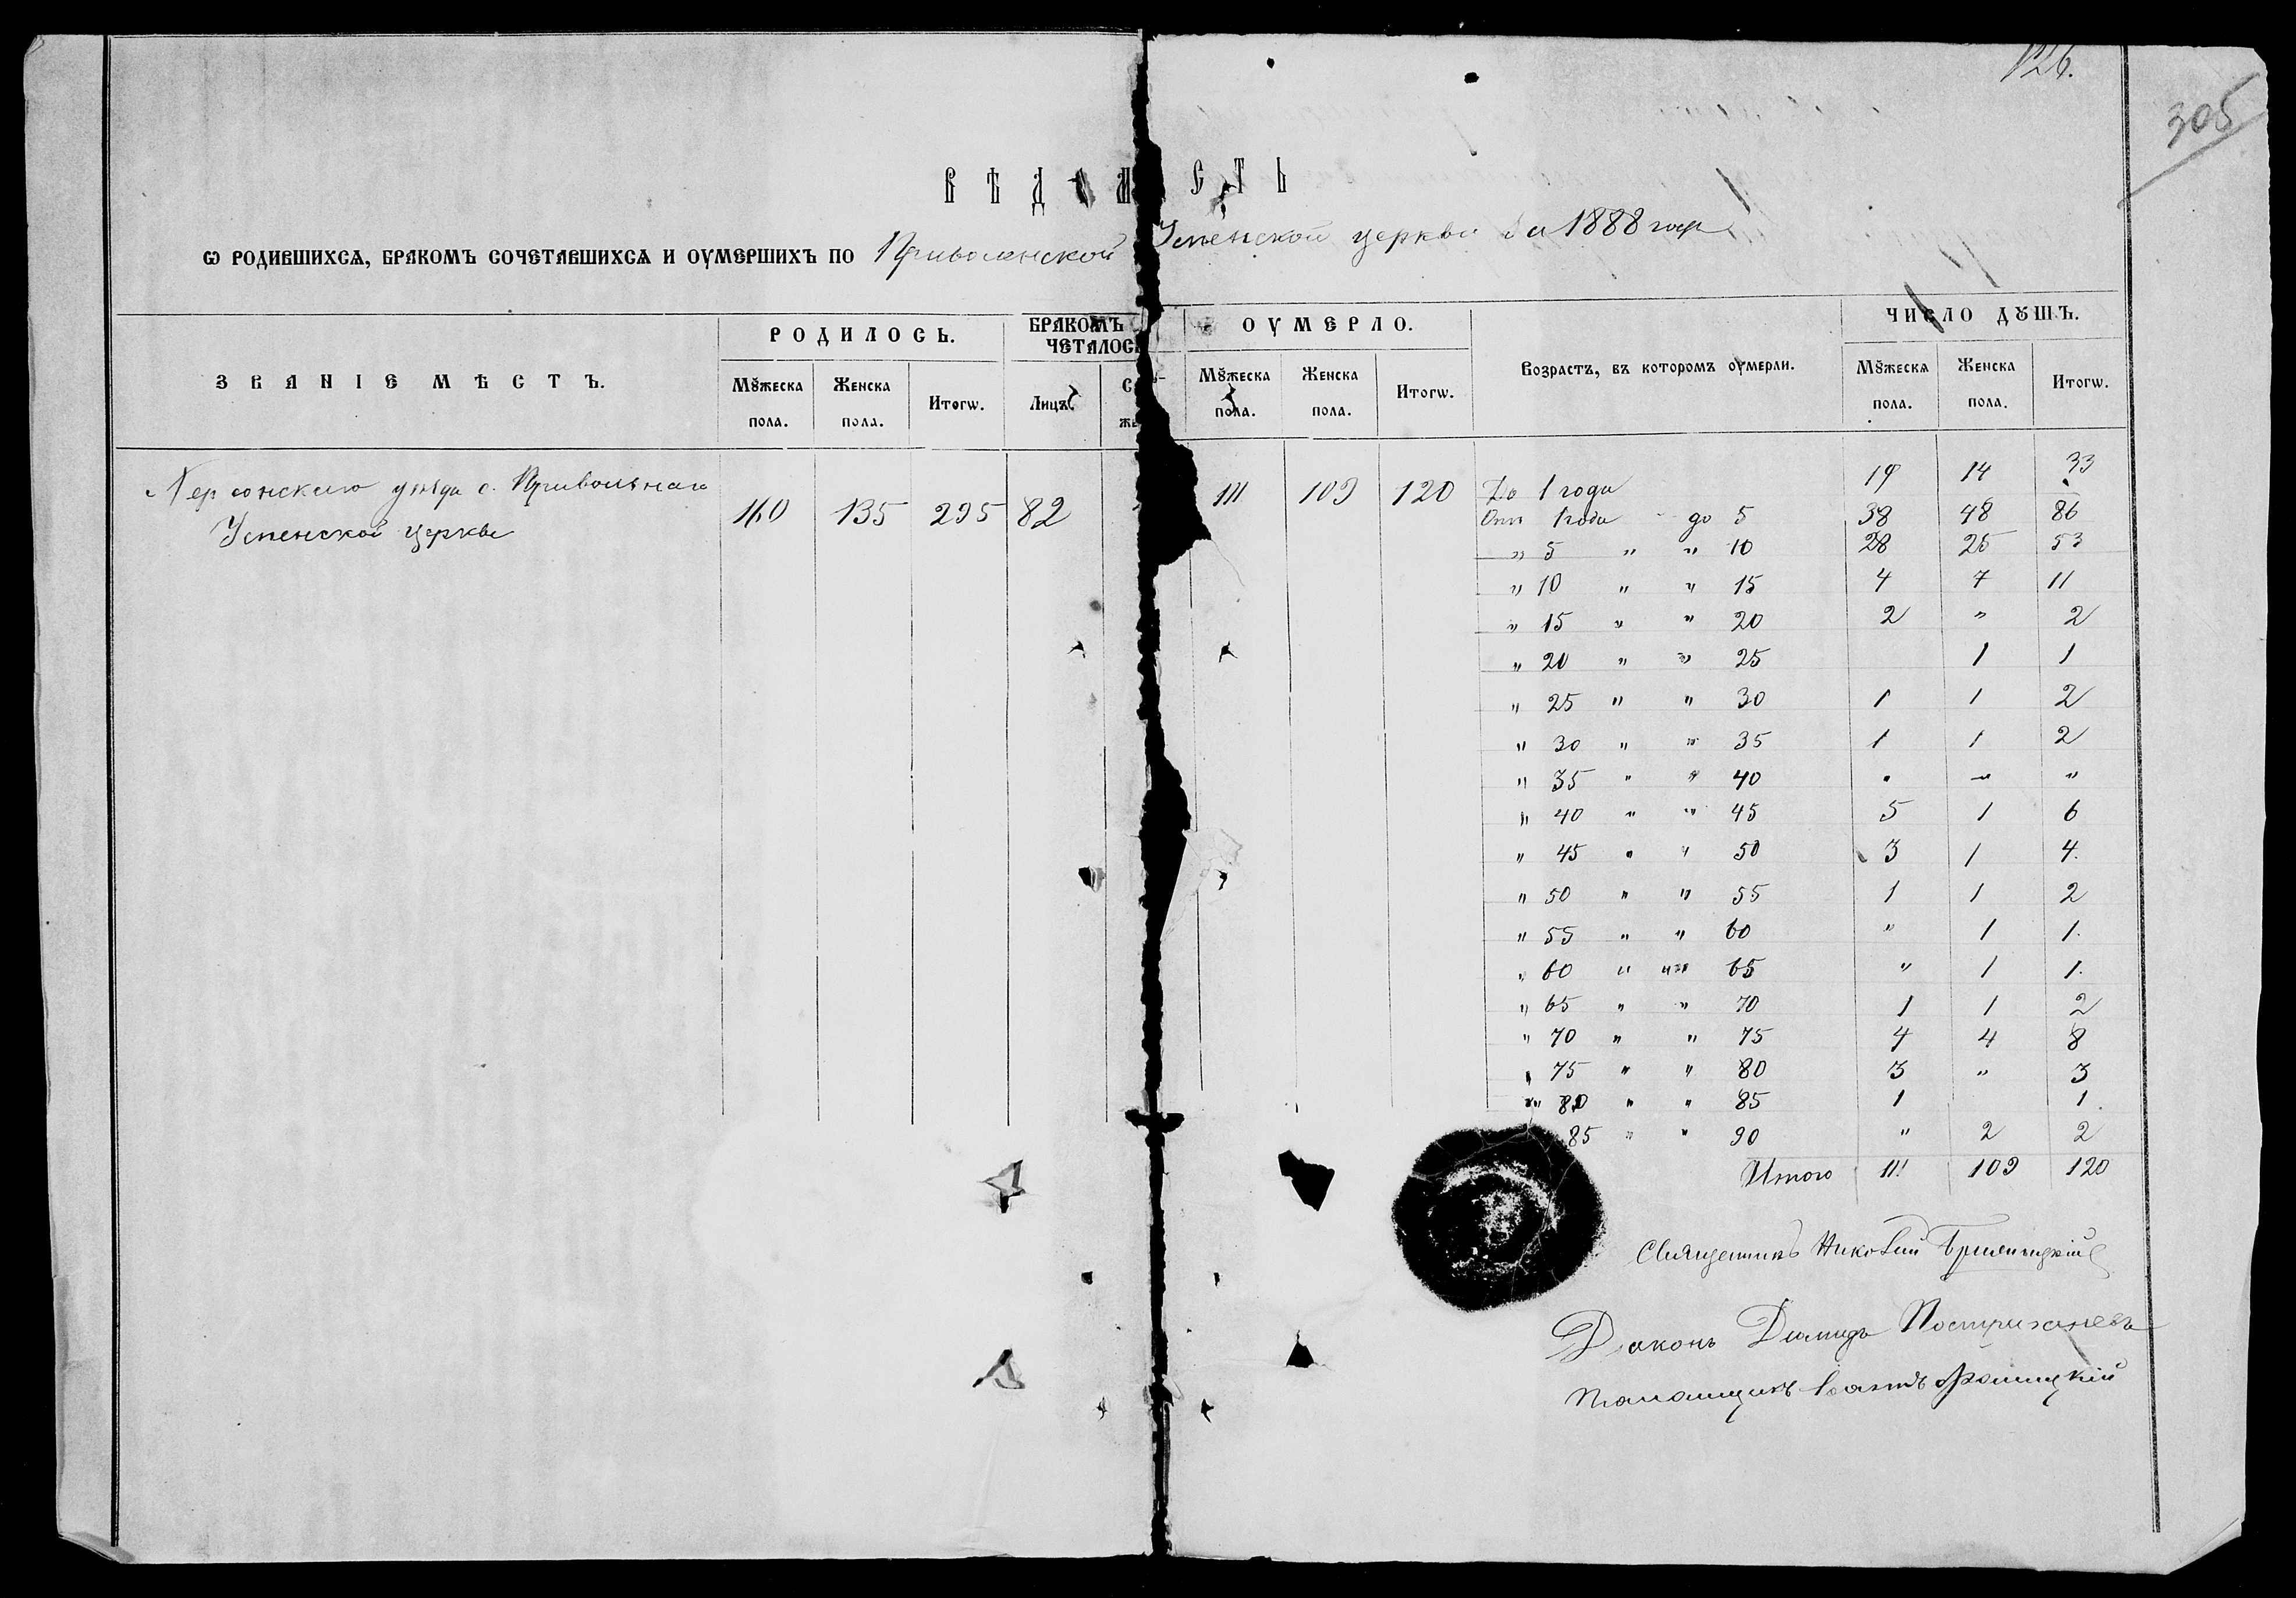 126.
305
ВѢДОМ СТЬ
Ѡ РОДИВШИХСѦ, БРАКОМЪ СОЧЕТАВШИХСѦ И ОУМЕРШИХЪ ПО Привольнской Успенской церкви за 1888 годъ
ЗВАНІЕ МѢСТЪ.
РОДИЛОСЬ.
БРАКОМЪ
ЧЕТАЛОСЬ
ОУМЕРЛО.
Возрастъ, въ которомъ оумерли.
ЧИСЛО ДꙊШЪ.
Мꙋжеска пола.
Женска пола.
Итогѡ.
Лицъ.
Мꙋжеска пола.
Женска пола.
Итогѡ.
Мꙋжеска пола.
Женска пола.
Итогѡ.
Херсонскаго уѣзда с. Привольнаго
Успенской церкви
160 135 295 82 111 109 120
До 1 года 19 14 33
Отъ 1 года до 5 38 48 86
" 5 " " 10 28 25 53
" 10 " " 15 4 7 11
" 15 " " 20 2 " 2
" 20 " " 25 1 1
" 25 " " 30 1 1 2
" 30 " " 35 1 1 2
" 35 " " 40 " " "
" 40 " " 45 5 1 6
" 45 " " 50 3 1 4.
" 50 " " 55 1 1 2
" 55 " " 60 " 1 1.
" 60 " " 65 " 1 1.
" 65 " " 70 1 1 2
" 70 " " 75 4 4 8
" 75 " " 80 3 " 3
" 80 " " 85 1 1.
85 " " 90 " 2 2
Итого 111 109 120
Священникъ Николай
Діаконъ Діомидъ
Іоаннъ